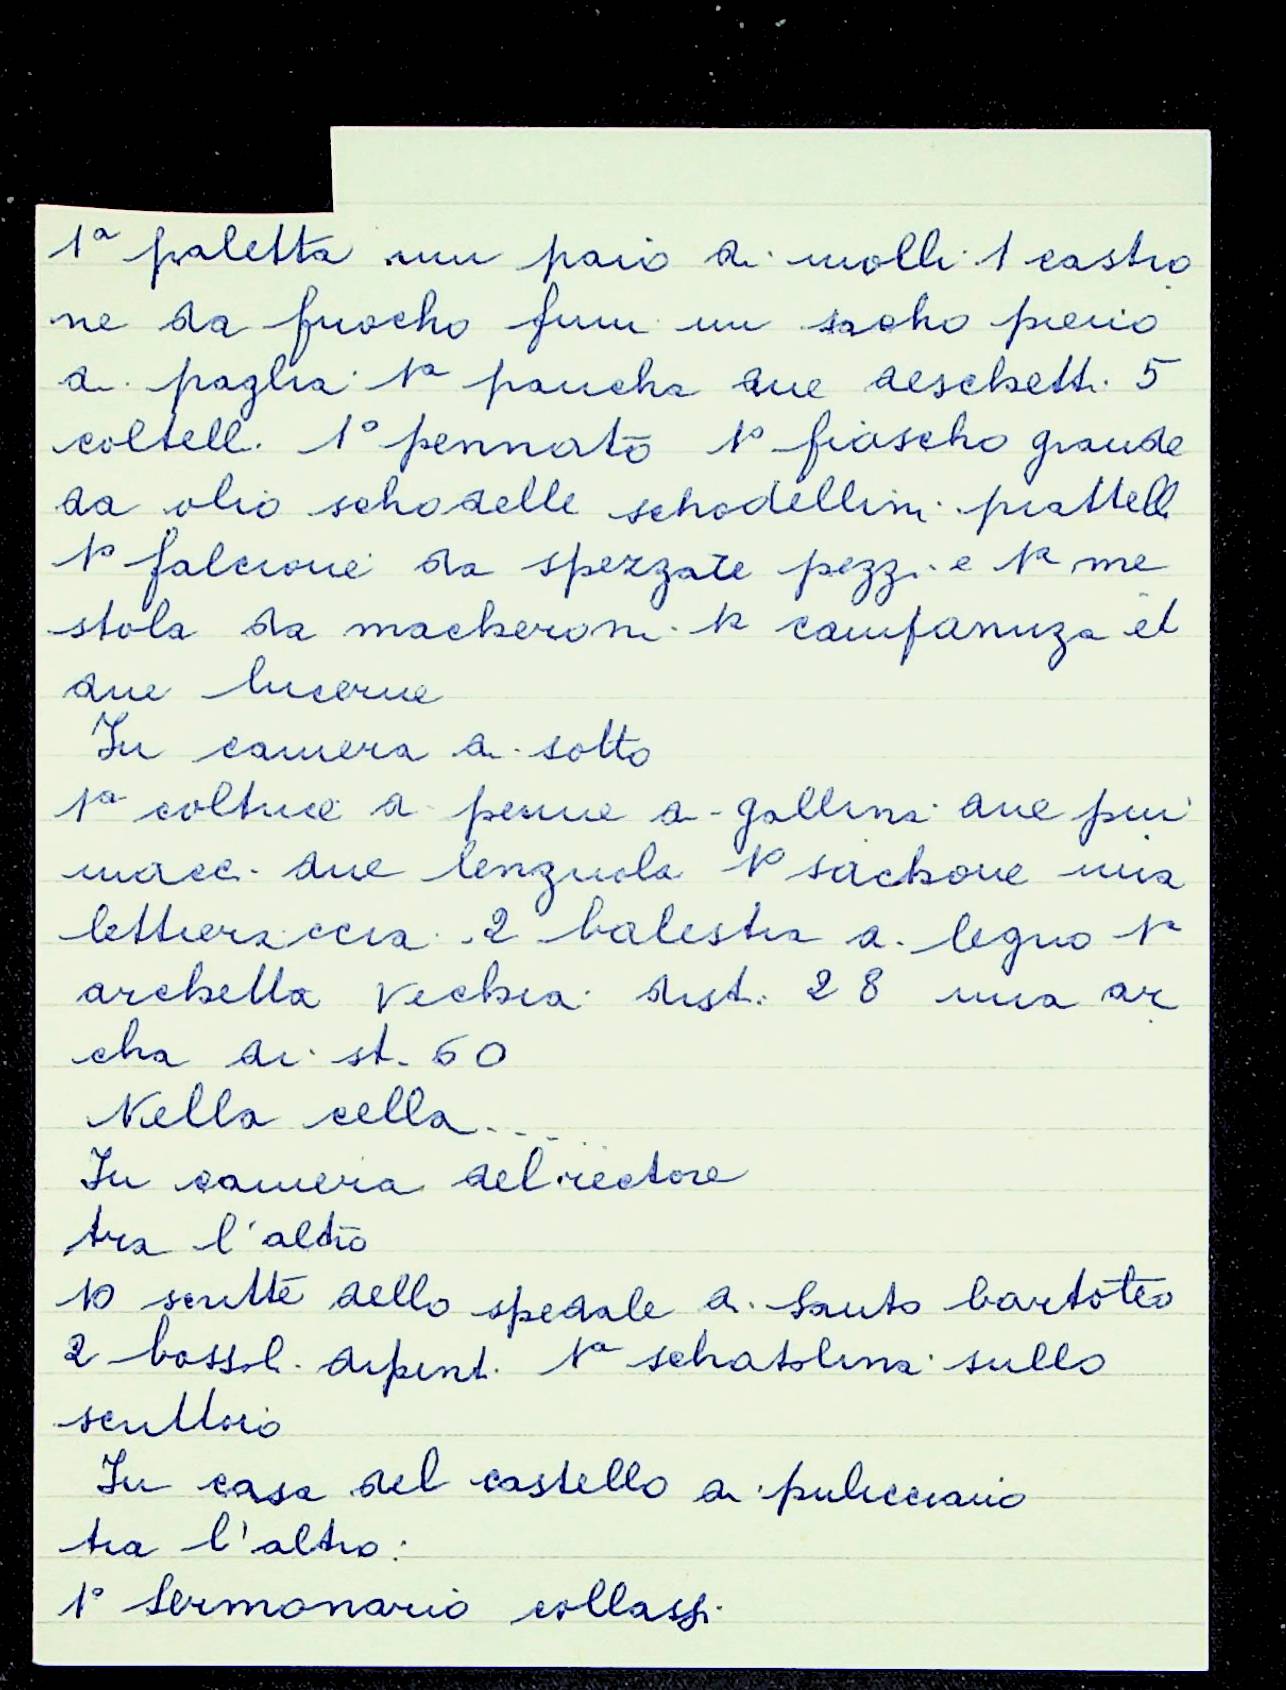 1ª paletta un paio di molli 1 castro
ne da fuocho funi un sacho pieno
di paglia 1ª pancha due deschetti 5
coltell. 1° pennato 1° fiascho grande
da olio schodelle schodellini piattell
1° falcione da spezzate pezzi e 1ª me
stola da mackeroni 1ª campanuza et
due lucerne
In camera di sotto
1ª coltrice di penne di gallina due piu
macci due lenzuola 1° sachone una
lettieraccia 2 balestra di legno 1ª
archetta vechia di st. 28 una ar
cha di st. 60
Nella cella....
In camera del rectore
tra l'altro
10 scritte dello spedale di Santo bartoleo
2 bossoli dipint. 1ª schatolina sullo
scrittoio
In casa del castello di pulicciano
tra l'altro:
1° Sermonario collassi